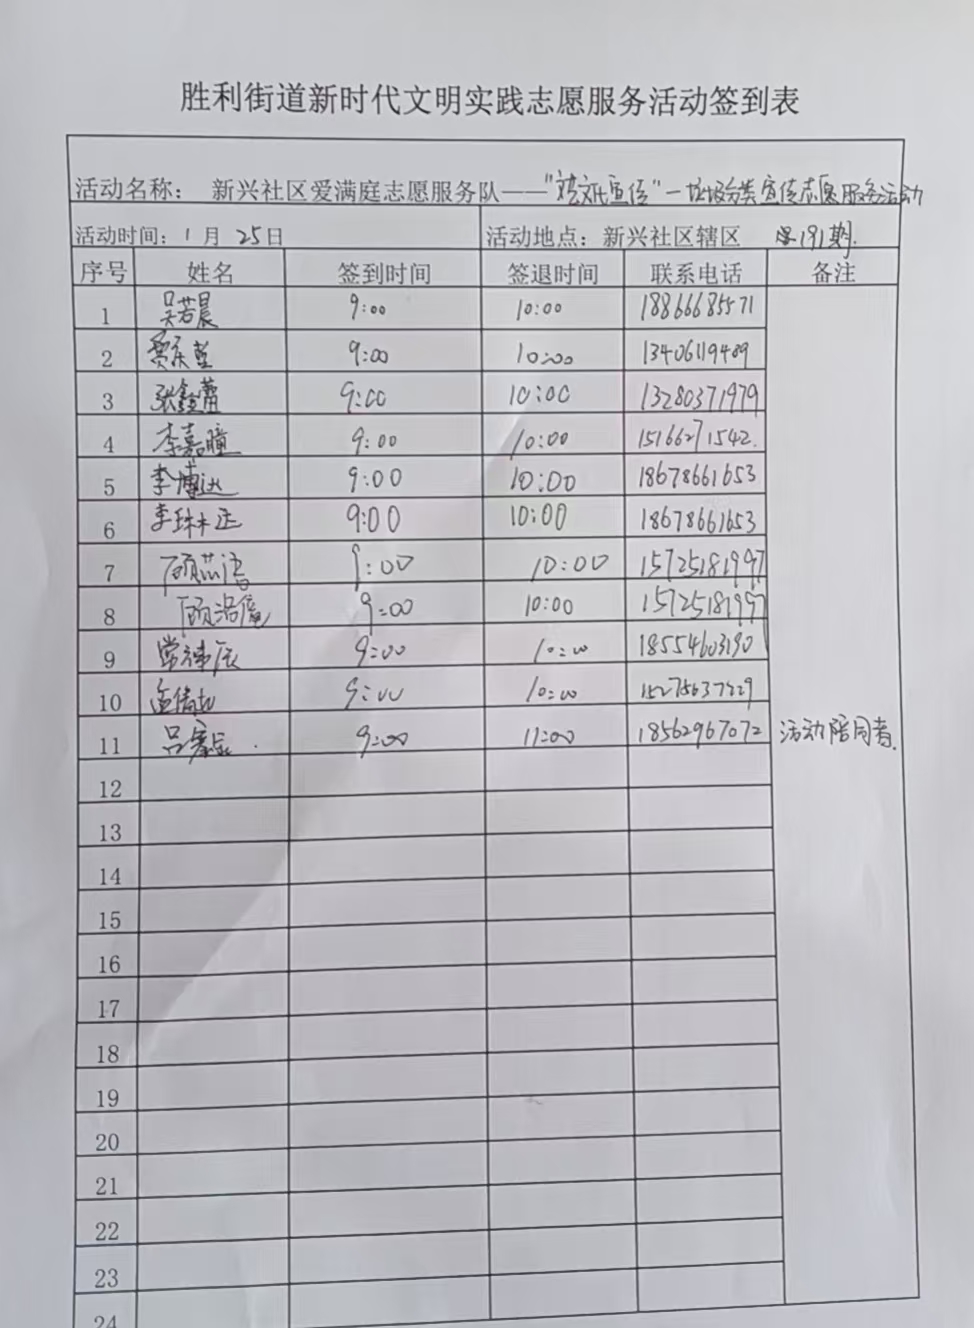 胜利街道新时代文明实践志愿服务活动签到表
活动名称： 新兴社区爱满庭志愿服务队——"宣传"一垃圾分类宣传志愿服务活动
活动时间：1月 25日 活动地点：新兴社区辖区 第191期.
序号 姓名 签到时间 签退时间 联系电话 备注
1 吴若晨 9:00 10:00 18866685571
2 9:00 10:00 13406119489
3 张鑫蕾 9:00 10:00 13280371979
4 李嘉瞳 9:00 10:00 15166271542.
5 李博达 9:00 10:00 18678661653
6 李 9:00 10:00 18678661653
7 顾芯语 9:00 10:00 15725181997
8 顾 9:00 10:00 15725181997
9 常 9:00 10:00 18554603190
10 孟 9:00 10:00
11 吕 9:00 11:00 18562967072 活动陪同者.
12
13
14
15
16
17
18
19
20
21
22
23
24